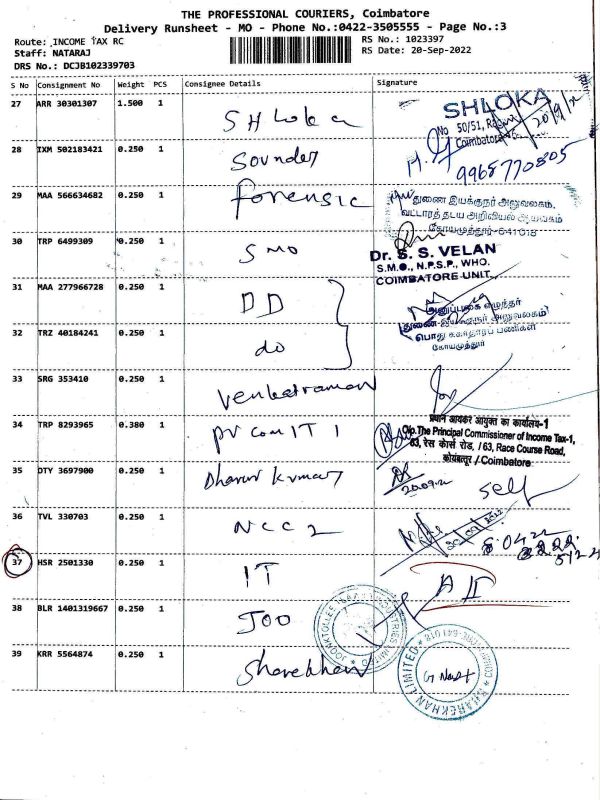 THE PROFESSIONAL COURIERS, Coimbatore
Delivery Runsheet - MO - Phone No.:0422-3505555 - Page No.:3
Route: INCOME TAX RC
RS No.: 1023397
Staff: NATARAJ
RS Date: 20-Sep-2022
DRS No.: DCJB102339703
S No Consignment No Weight PCS Consignee Details Signature
27 ARR 30301307 1.500 1 SHloka
SHLOKA
No 50/51,
Coimbatore
20/9/2
9965770805
28 IXM 502183421 0.250 1 Sounder
29 MAA 566634682 0.250 1 forensic
துணை இயக்குநர் அலுவலகம்,
வட்டாரத் தடய அறிவியல் ஆய்வகம்
கோயமுத்தூர்-641018
30 TRP 6499309 0.250 1 SMO
Dr. S. S. VELAN
S.M.O., N.P.S.P., WHO.
COIMBATORE UNIT
31 MAA 277966728 0.250 1 DD
துணை இயக்குநர் அலுவலகம்
பொது சுகாதாரப் பணிகள்
கோயமுத்தூர்
32 TRZ 40184241 0.250 1 do
33 SRG 353410 0.250 1 Venkatraman
34 TRP 8293965 0.380 1 Pr com IT 1
प्रधान आयकर आयुक्त का कार्यालय-1
O/o.The Principal Commissioner of Income Tax-1,
63, रेस कोर्स रोड, / 63, Race Course Road,
कोयंबत्तूर / Coimbatore
35 DTY 3697900 0.250 1 Dharun kumar
20.09.2
self
36 TVL 330703 0.250 1 NCC 2
20/09/2022
37 HSR 2501330 0.250 1 IT
38 BLR 1401319667 0.250 1 JOO
39 KRR 5564874 0.250 1 Sharekhan
SHAREKHAN LIMITED
COIMBATORE-641 018